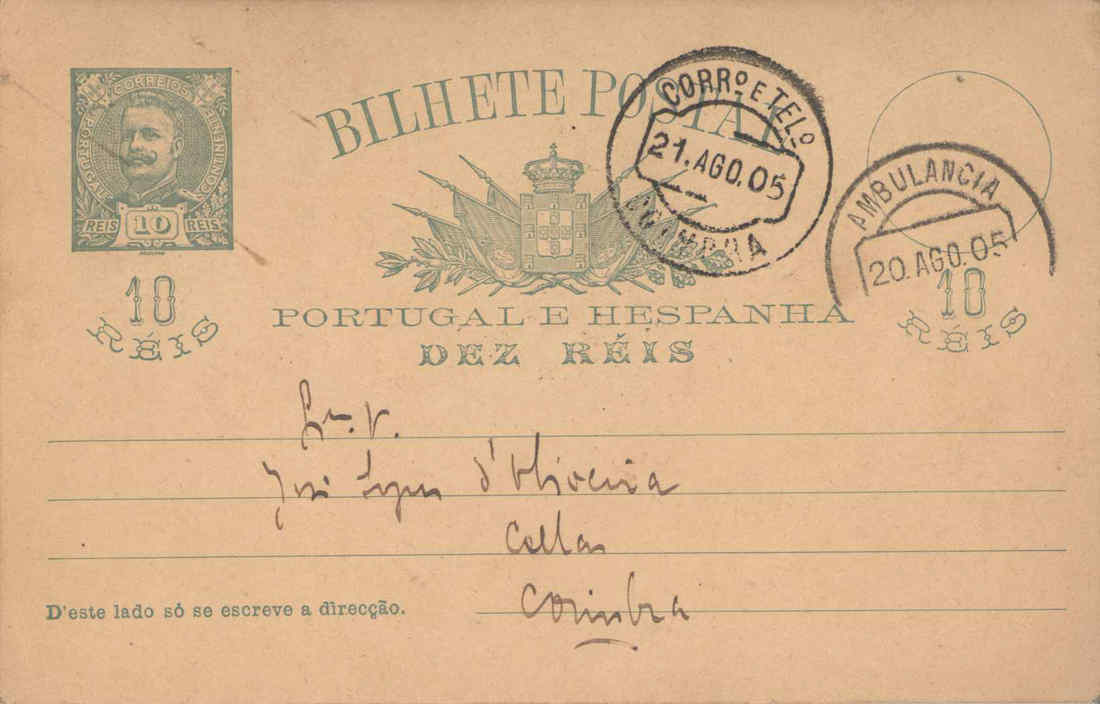 CORREIOS
PORTUGAL
CONTINENTE
REIS 10 REIS
10
RÉIS
BILHETE POSTAL
CORRº E TELº
21. AGO. 05
COIMBRA
AMBULANCIA
20. AGO. 05
10
RÉIS
PORTUGAL E HESPANHA
DEZ RÉIS
José Lopes d'Oliveira
Cellas
Coimbra
D'este lado só se escreve a direcção.